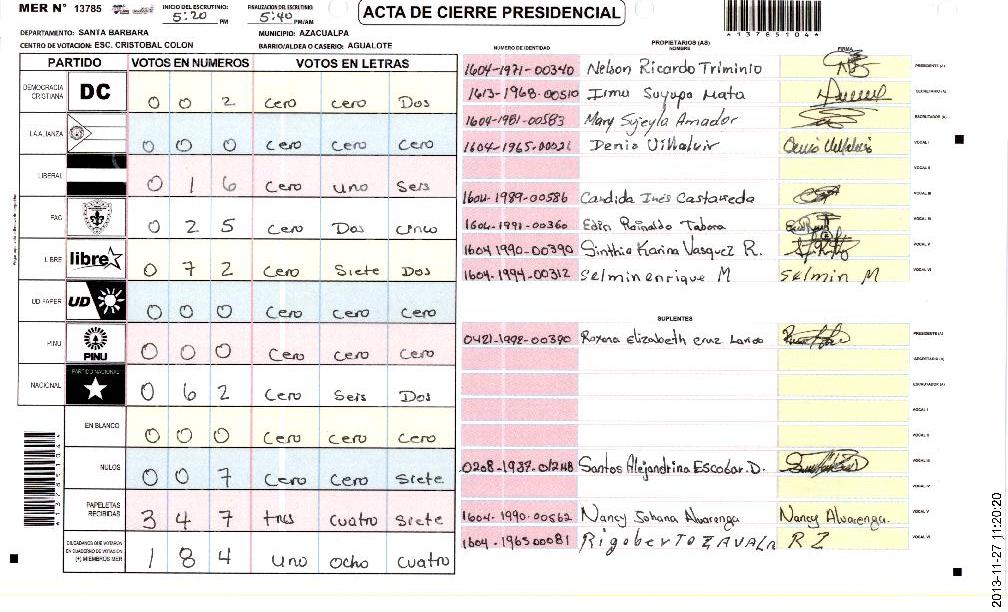 MER N° 13785 INICIO DEL ESCRUTINIO: 5:20 PM FINALIZACION DEL ESCRUTINIO: 5:40 PM/AM ACTA DE CIERRE PRESIDENCIAL *13785104*
DEPARTAMENTO: SANTA BARBARA MUNICIPIO: AZACUALPA
CENTRO DE VOTACION: ESC. CRISTOBAL COLON BARRIO/ALDEA O CASERIO: AGUALOTE
PARTIDO VOTOS EN NUMEROS VOTOS EN LETRAS
DEMOCRACIA CRISTIANA DC 0 0 2 Cero cero Dos
LA ALIANZA 0 0 0 Cero Cero Cero
LIBERAL 0 1 6 Cero uno Seis
PAC 0 2 5 Cero Dos cinco
LIBRE libre 0 7 2 Cero Siete Dos
UD FAPER UD 0 0 0 Cero Cero Cero
PINU PINU 0 0 0 Cero Cero Cero
NACIONAL PARTIDO NACIONAL 0 6 2 Cero Seis Dos
EN BLANCO 0 0 0 Cero Cero Cero
NULOS 0 0 7 Cero Cero siete
PAPELETAS RECIBIDAS 3 4 7 tres cuatro siete
CIUDADANOS QUE VOTARON EN CUADERNO DE VOTACION (+) MIEMBROS MER 1 8 4 uno ocho cuatro
PROPIETARIOS (AS)
NUMERO DE IDENTIDAD NOMBRE FIRMA
1604-1971-00340 Nelson Ricardo Triminio PRESIDENTE (A)
1613-1968-00510 Irma Suyapa Mata SECRETARIO (A)
1604-1981-00583 Mary Sujeyla Amador ESCRUTADOR (A)
1604-1965-00321 Denis Villalvir VOCAL I
VOCAL II
1604-1989-00586 Candida Inés Castañeda VOCAL III
1604-1991-00360 Edin Reinaldo Tabora VOCAL IV
1604 1990-00390 Sinthia Karina Vasquez R. VOCAL V
1604-1994-00312 Selmin enrique M Selmin M VOCAL VI
SUPLENTES
0421-1992-00390 Roxana Elizabeth cruz PRESIDENTE (A)
SECRETARIO (A)
ESCRUTADOR (A)
VOCAL I
VOCAL II
0208-1937- Santos Alejandrina Escobar. D. VOCAL III
VOCAL IV
1604-1990-00562 Nancy Johana Alvarenga Nancy Alvarenga. VOCAL V
1604-1965 00081 Rigoberto ZAVALA R Z VOCAL VI
2013-11-27 11:20:20